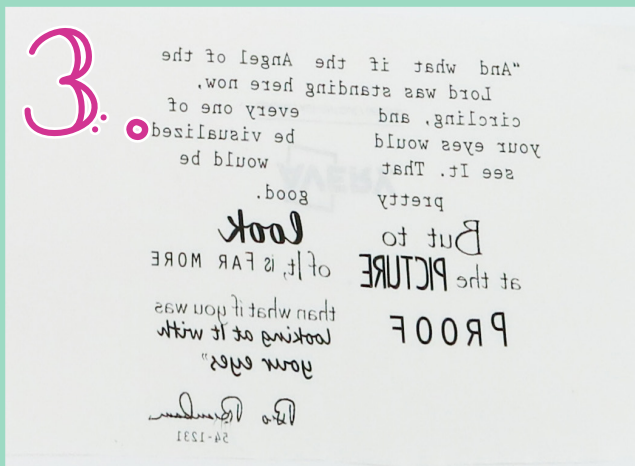 3.
"And what if the Angel of the
Lord was standing here now,
circling, and every one of
your eyes would be visualized
see It. That would be
pretty good.
But to look
at the PICTURE of It, is FAR MORE
PROOF than what if you was
looking at It with
your eyes"
Bro Branham
54-1231
AVERY